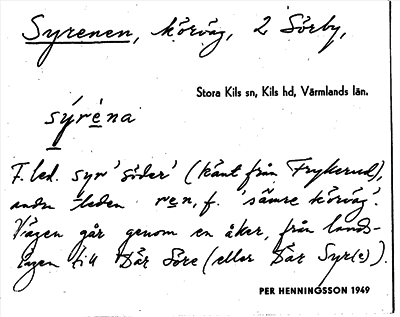 Syrenen, körväg, 2 Sörby,
Stora Kils sn, Kils hd, Värmlands län.
sýrèna
F.led. syr 'söder' (känt från Frykerud),
andra leden ren, f. 'sämre körväg'.
Vägen går genom en åker, från lands-
vägen till Där Söre (eller Där Syr(e)).
PER HENNINGSSON 1949